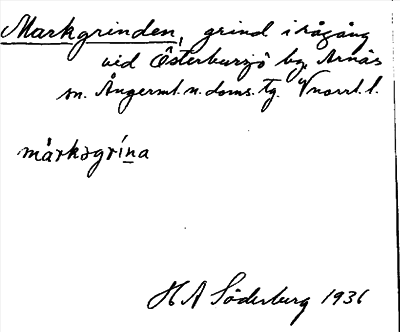 Markgrinden, grind i rågång
vid Österbursjö by, Arnäs
sn. Ångerml. n. doms. tg. Vnorrl. l.
mårkəgrína
H A Söderberg 1936